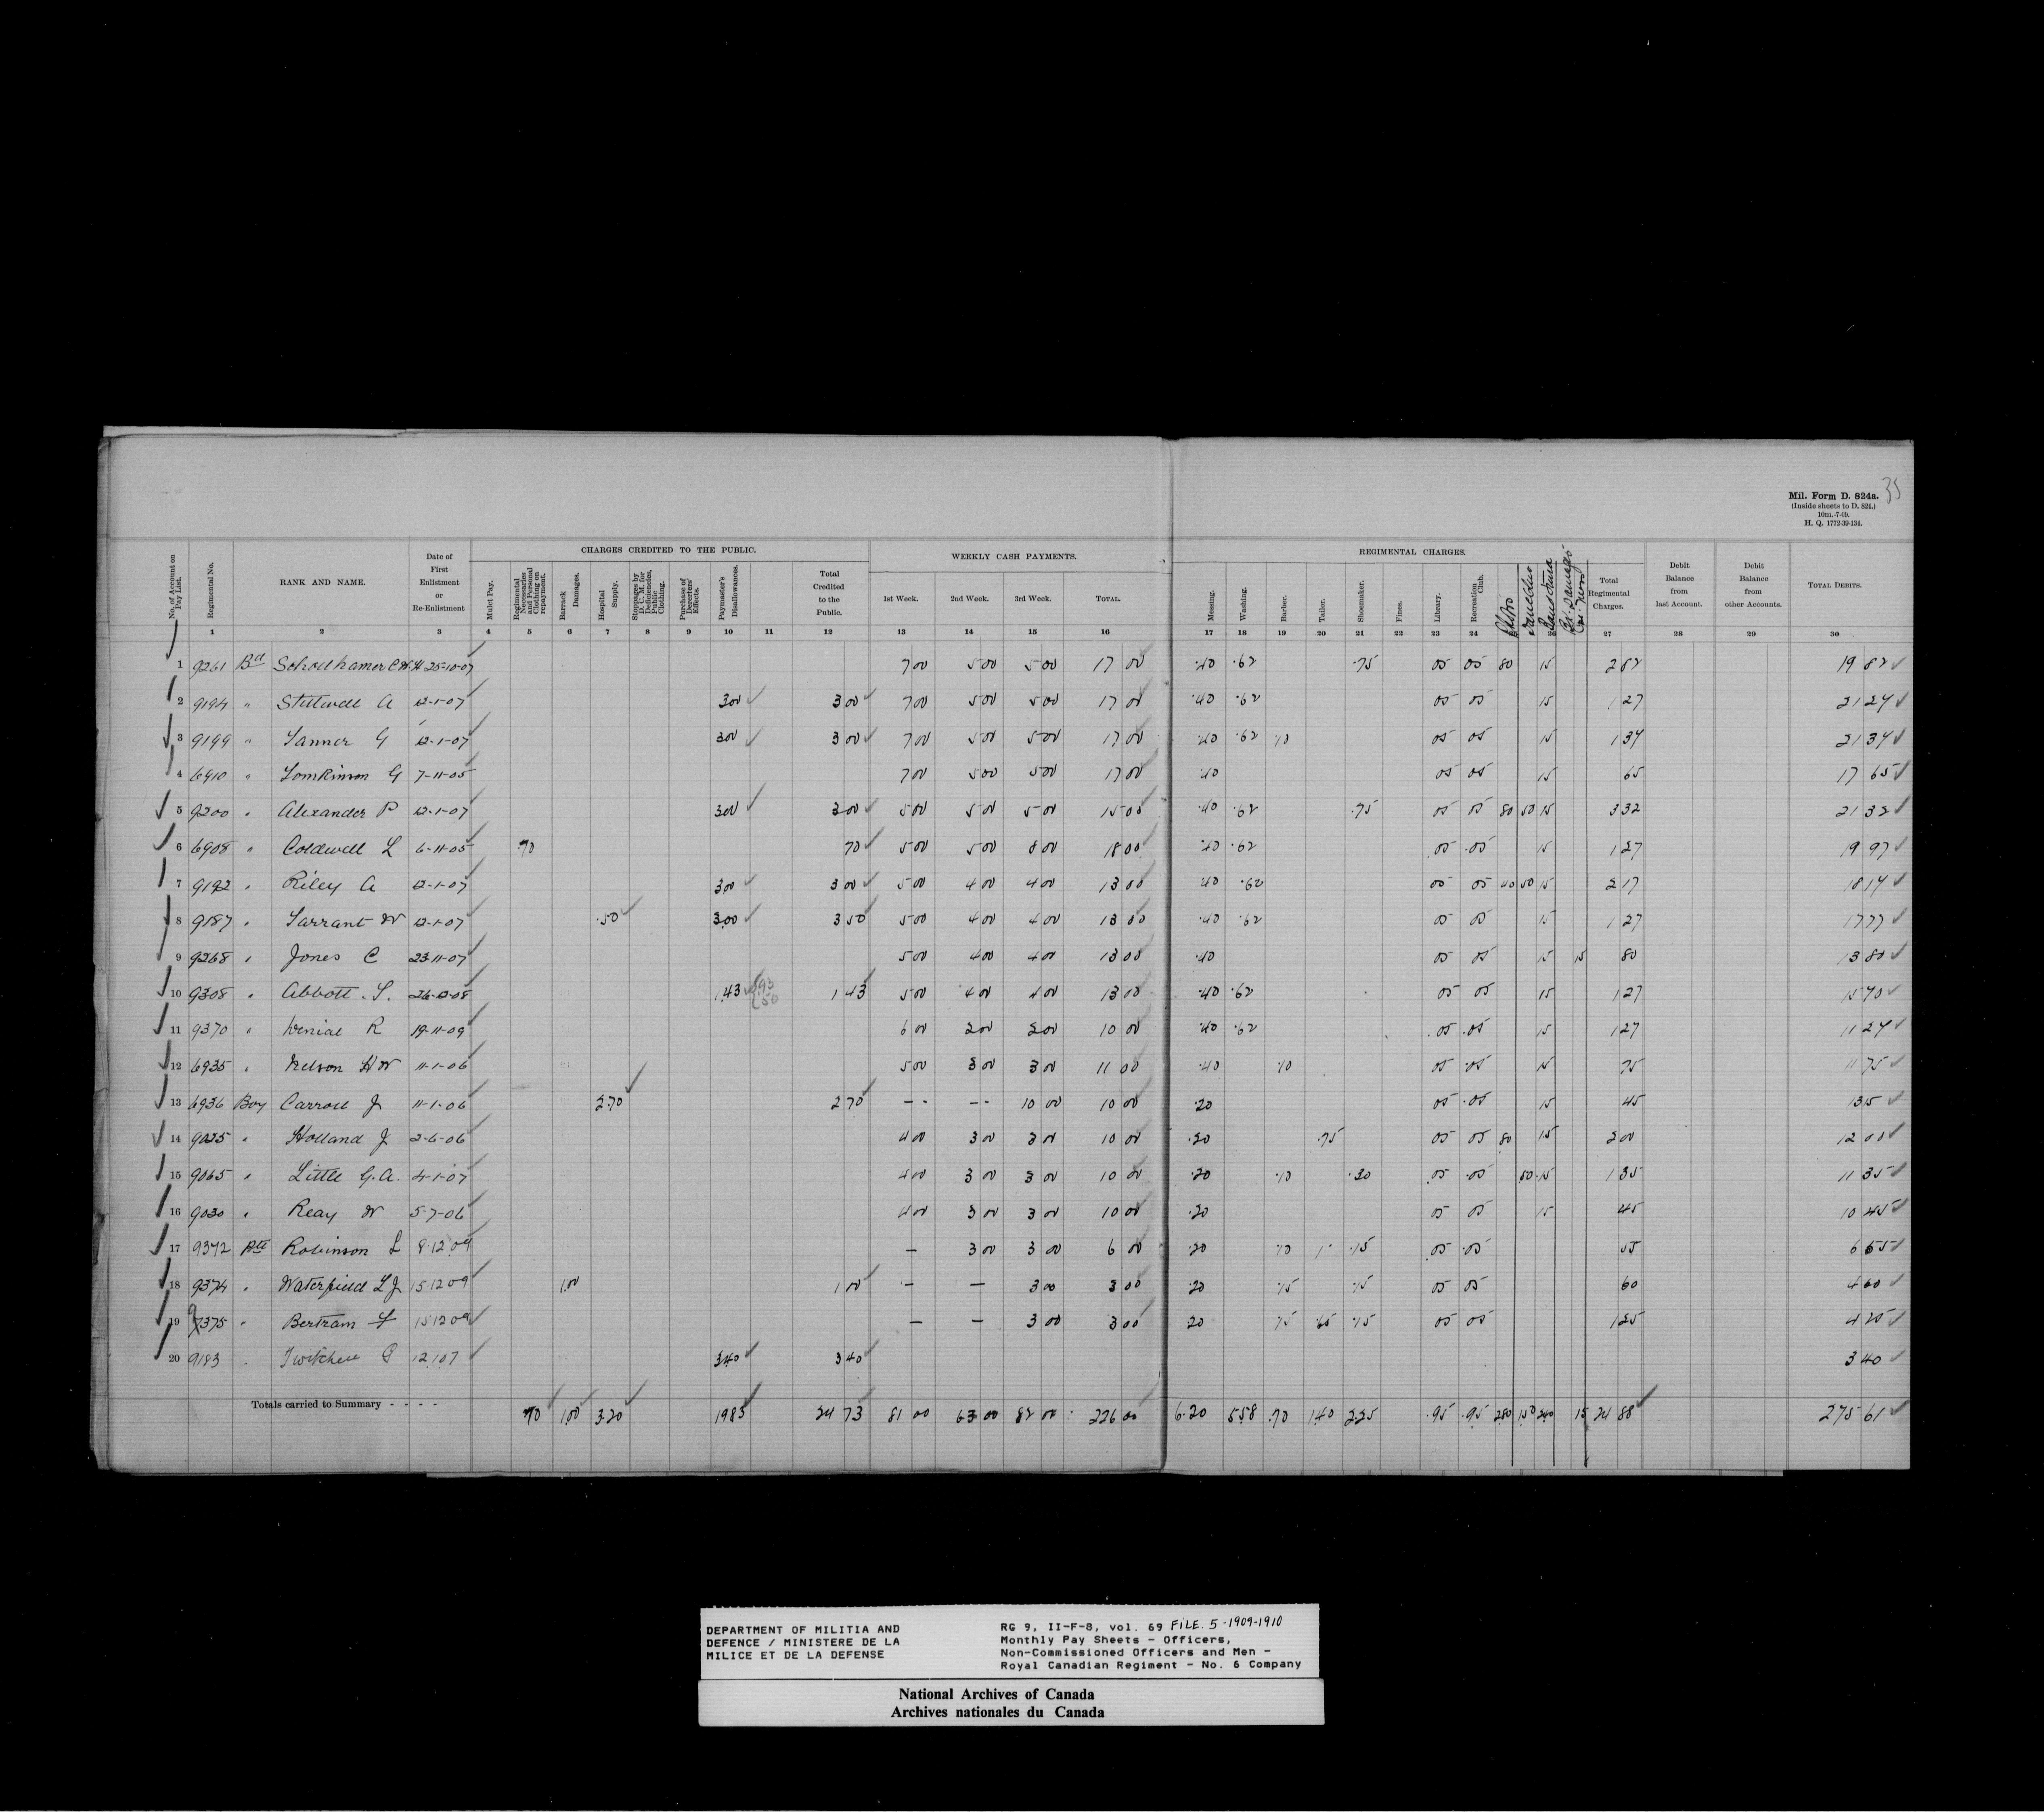 35
Mil. Form D. 824a.
(Inside sheets to D. 824.)
10m.-7-09.
H. Q. 1772-39-134.
CHARGES CREDITED TO THE PUBLIC. WEEKLY CASH PAYMENTS. REGIMENTAL CHARGES.
No. of Account on Pay List. Regimental No. RANK AND NAME. Date of First Enlistment or Re-Enlistment Mulct Pay. Regimental Necessaries and Personal Clothing on repayment. Barrack Damages. Hospital Supply. Stoppages by D. U. M. for Deficiencies, Public Clothing. Purchase of Deserters' Effects. Paymaster's Disallowances. Total Credited to the Public. 1st Week. 2nd Week. 3rd Week. TOTAL. Messing. Washing. Barber. Tailor. Shoemaker. Fines. Library. Recreation Club. Total Regimental Charges. Debit Balance from last Account. Debit Balance from other Accounts. TOTAL DEBITS.
1 2 3 4 5 6 7 8 9 10 11 12 13 14 15 16 17 18 19 20 21 22 23 24 26 27 28 29 30
1 9261 Bd 25-10-07 7 00 5 00 5 00 17 00 .40 .62 .75 05 05 80 15 2 82 19 82
2 9194 " Stillwell A 12-1-07 3 00 3 00 7 00 5 00 5 00 17 00 .40 .62 05 05 15 1 27 21 27
3 9199 " Tanner G 12-1-07 3 00 3 00 7 00 5 00 5 00 17 00 .40 .62 10 05 05 15 1 37 21 37
4 6910 " Tomkinson G 7-11-05 7 00 5 00 5 00 17 00 .40 05 05 15 65 17 65
5 9200 " Alexander P 12-1-07 3 00 3 00 5 00 5 00 5 00 15 00 .40 .62 .75 05 05 80 50 15 3 32 21 32
6 6908 " Coldwell L 6-11-05 .70 70 5 00 5 00 8 00 18 00 .40 .62 .05 .05 15 1 27 19 97
7 9192 " Riley A 12-1-07 3 00 3 00 5 00 4 00 4 00 13 00 40 .62 05 05 40 50 15 2 17 18 17
8 9187 " Tarrant W 12-1-07 .50 3.00 3 50 5 00 4 00 4 00 13 00 .40 .62 05 05 15 1 27 17 77
9 9268 " Jones C 23-11-07 5 00 4 00 4 00 13 00 .40 05 05 15 15 80 13 80
10 9308 " Abbott . S. 26-12-08 1.43 .93 .50 1 43 5 00 4 00 4 00 13 00 .40 .62 05 05 15 1 27 15 70
11 9370 " R 19-11-09 6 00 2 00 2 00 10 00 .40 .62 .05 .05 15 1 27 11 27
12 6935 " Nelson H W 11-1-06 5 00 3 00 3 00 11 00 .40 .10 05 .05 15 75 11 75
13 6936 Boy Carroll J 11-1-06 2.70 2 70 -- -- 10 00 10 00 .20 05 .05 15 45 13 15
14 9025 " Holland J 2-6-06 4 00 3 00 3 00 10 00 .20 .75 05 05 80 15 2 00 12 00
15 9065 " Little G. A. 4-1-07 4 00 3 00 3 00 10 00 .20 .10 .30 .05 .05 .50 .15 1 35 11 35
16 9030 " Reay W 5-7-06 4 00 3 00 3 00 10 00 .20 05 05 15 45 10 45
17 9372 Pte Robinson L 8-12 09 — 3 00 3 00 6 00 .20 .10 .15 .05 .05 55 6 55
18 9374 " Waterfield L J 15-12 09 1.00 1 00 — — 3 00 3 00 .20 .15 .15 05 05 60 4 60
19 9375 " Bertram F 15 12 09 — — 3 00 3 00 .20 15 .65 .15 05 05 1 25 4 25
20 9183 " Twitchell 12 1 07 3.40 3 40 3 40
Totals carried to Summary - - - - .70 1.00 3.20 19 83 24 73 81 00 63 00 82 00 226 00 6.20 5.58 .70 1.40 2.25 .95 .95 2.80 1.50 2.40 15 24 88 275 61
DEPARTMENT OF MILITIA AND
DEFENCE / MINISTERE DE LA
MILICE ET DE LA DEFENSE
RG 9, II-F-8, vol. 69 FILE. 5 -1909-1910
Monthly Pay Sheets - Officers,
Non-Commissioned Officers and Men -
Royal Canadian Regiment - No. 6 Company
National Archives of Canada
Archives nationales du Canada